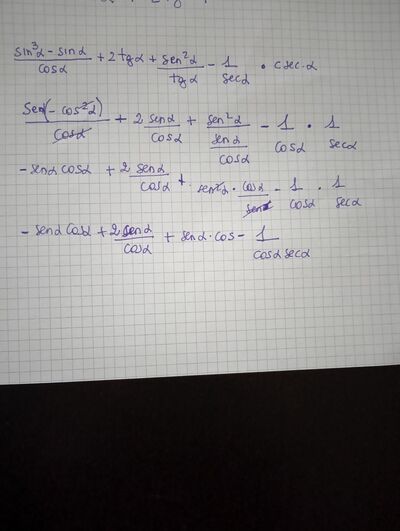 sin³α - sinα / cosα + 2 tgα + sen²α / tgα - 1 / secα · csec·α
sen(-cos²α) / cosα + 2 senα / cosα + sen²α / senα / cosα - 1 / cosα · 1 / secα
- senα cosα + 2 senα / cosα + sen²α · cosα / senα - 1 / cosα · 1 / secα
- senα cosα + 2 senα / cosα + senα · cos - 1 / cosα secα